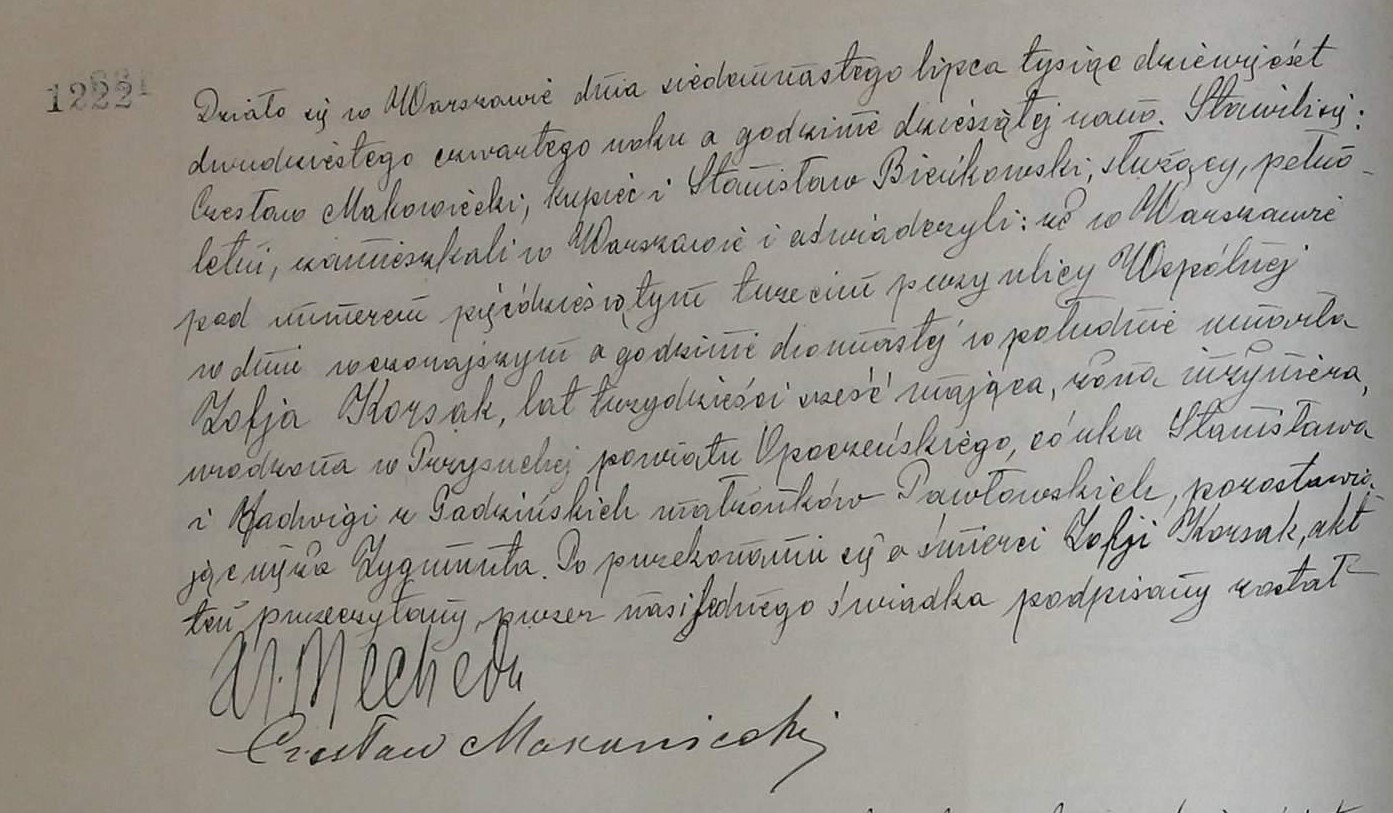 1222
Działo się w Warszawie dnia siedemnastego lipca tysiąc dziewięćset
dwudziestego czwartego roku o godzinie dziesiątej rano. Stawili się:
Czesław Makowiecki, kupiec i Stanisław Bieńkowski, służący, pełno-
letni, zamieszkali w Warszawie i oświadczyli: że w Warszawie
pod numerem pięćdziesiątym trzecim przy ulicy Wspólnej
w dniu wczorajszym o godzinie dwunastej w południe umarła
Zofja Korsak, lat trzydzieści sześć mająca, żona inżyniera,
urodzona w Przysuchej powiatu Opoczeńskiego, córka Stanisława
i Jadwigi z Gadzińskich małżonków Pawłowskich, pozostawia-
jąc męża Zygmunta. Po przekonaniu się o śmierci Zofji Korsak, akt
ten przeczytany, przez nas i jednego świadka podpisany został
Czesław Makowiecki